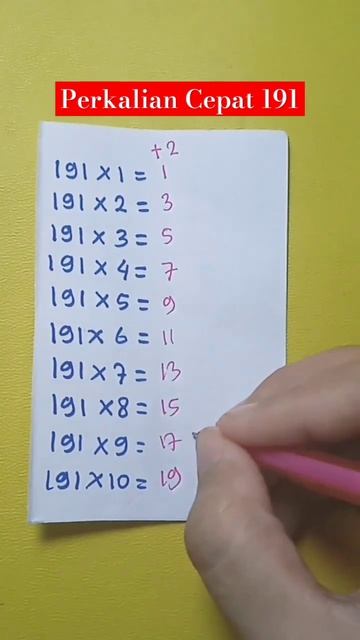 Perkalian Cepat 191
+2
191 × 1 = 1
191 × 2 = 3
191 × 3 = 5
191 × 4 = 7
191 × 5 = 9
191 × 6 = 11
191 × 7 = 13
191 × 8 = 15
191 × 9 = 17
191 × 10 = 19